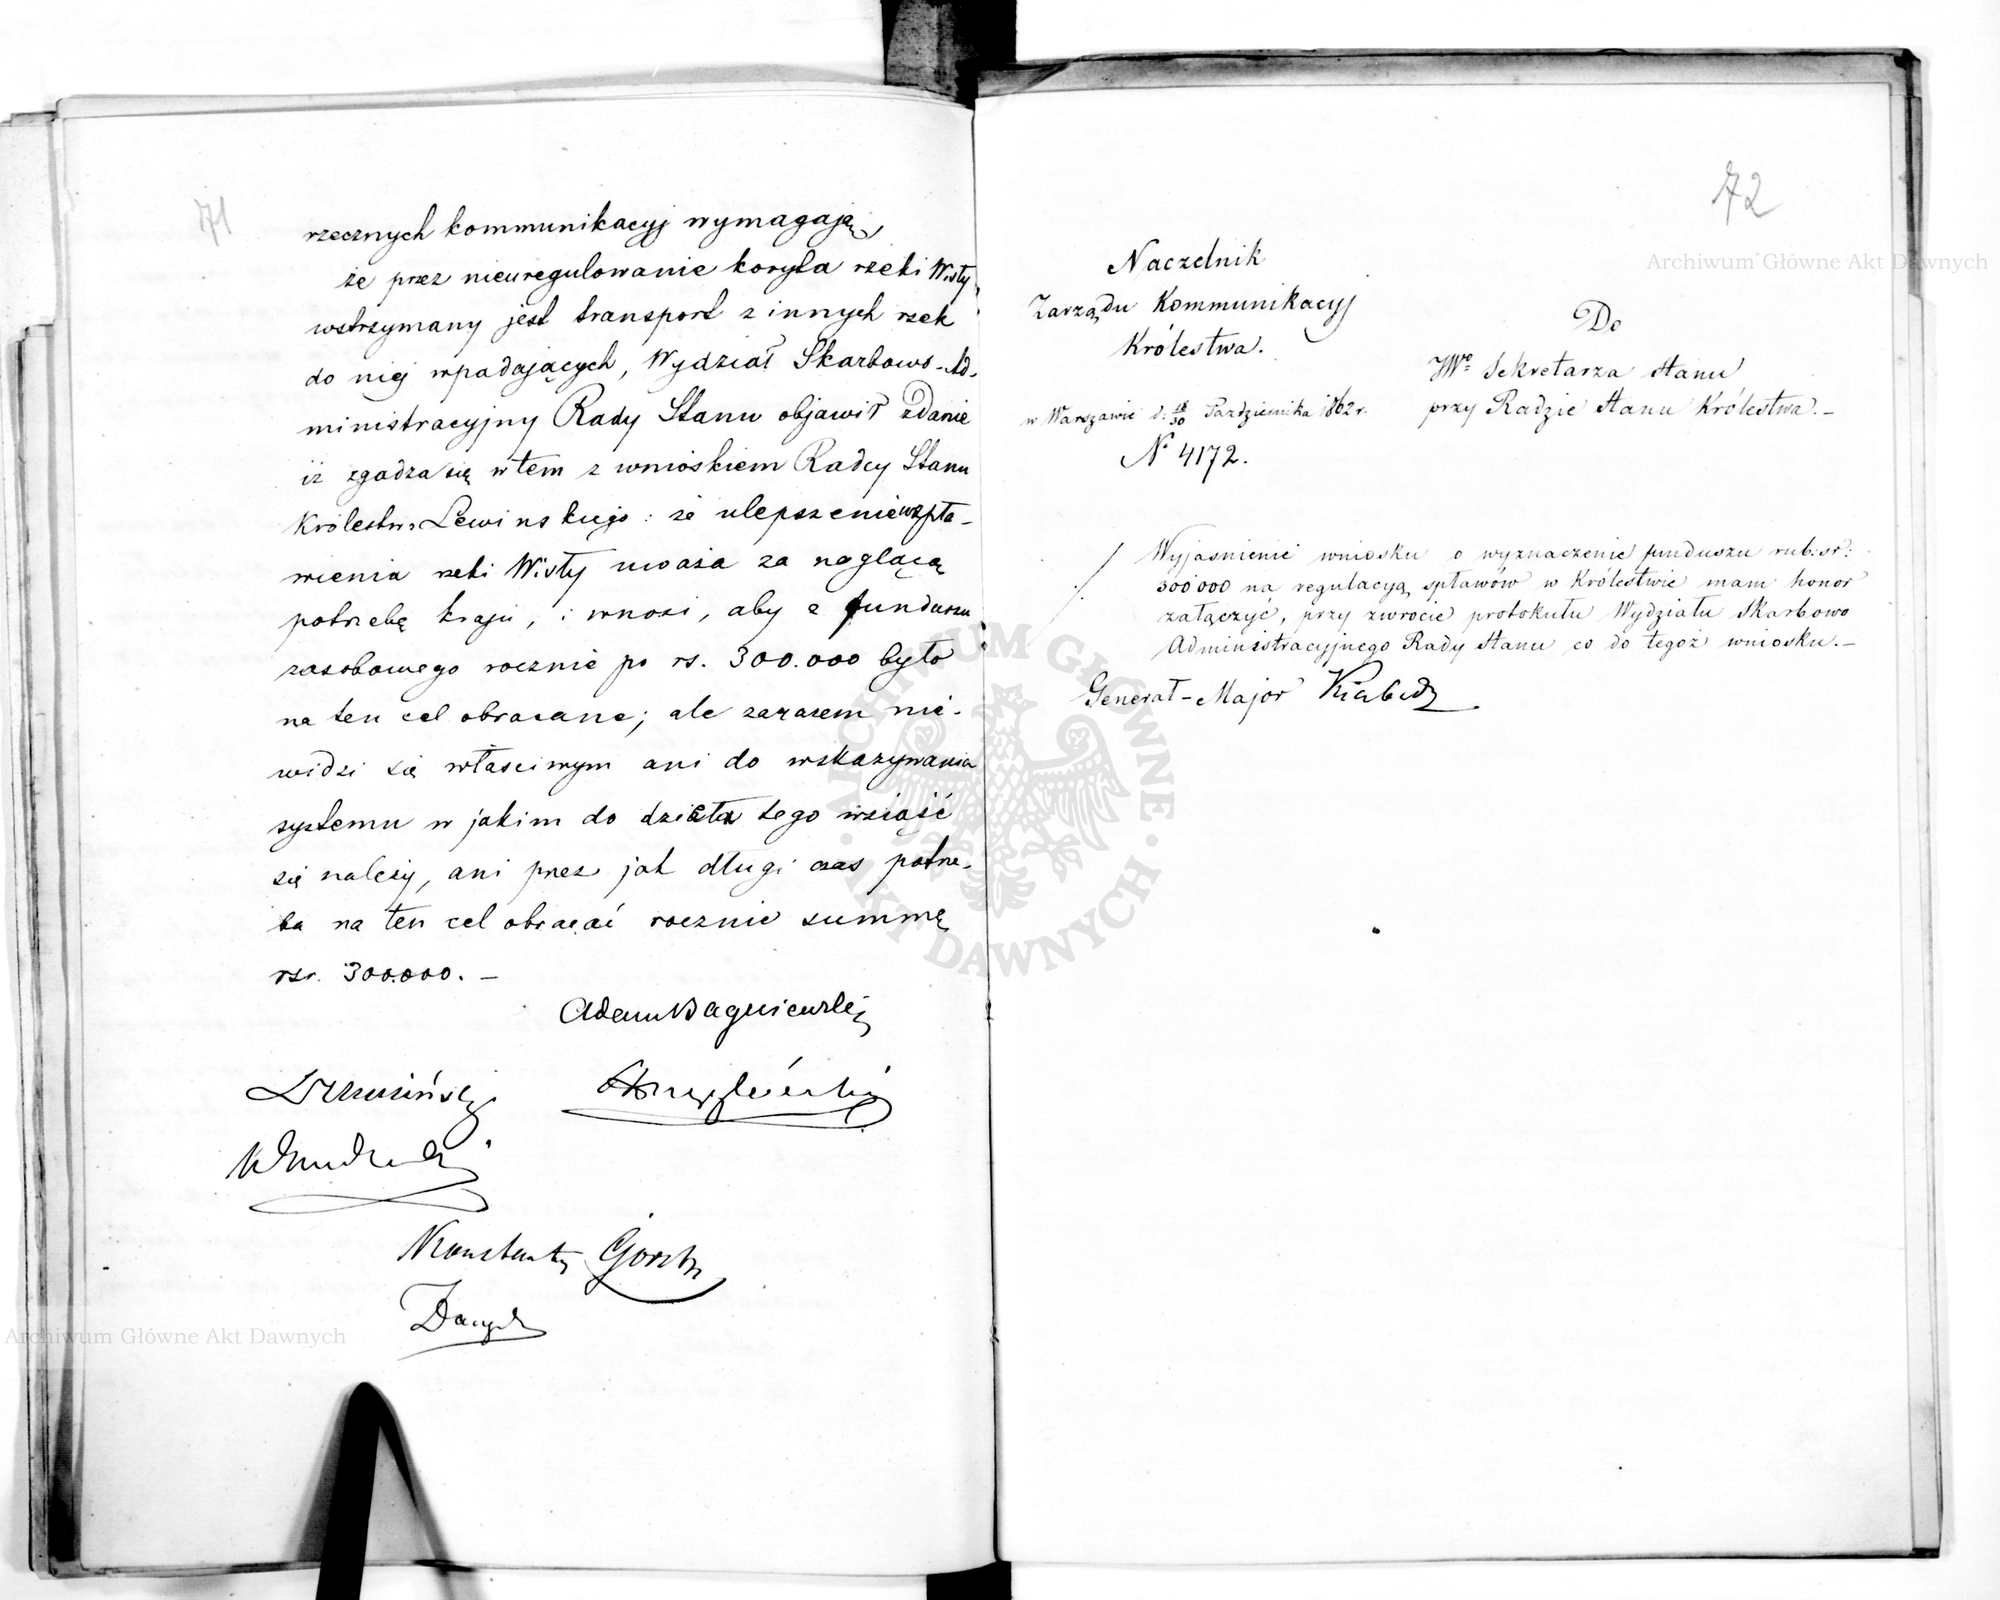 71
rzecznych kommunikacyj wymagają,
że przez nieuregulowanie koryta rzeki Wisły
wstrzymany jest transport z innych rzek
do niej wpadających, Wydział Skarbowo-Ad-
ministracyjny Rady Stanu objawił zdanie
iż zgadza się w tem z wnioskiem Radcy Stanu
Królestwa Lewinskiego: że ulepszenie uspła-
wienia rzeki Wisły uważa za naglącą
potrzebę kraju, i wnosi, aby z funduszu
zasobowego rocznie po rs. 300.000 było
na ten cel obracane; ale zarazem nie-
widzi się właściwym ani do wskazywania
systemu w jakim do dzieła tego wziąść
się należy, ani przez jak długi czas potrze-
ba na ten cel obracać rocznie summę
rsr. 300.000. —
Adam Bagniewski
Konstanty Górski
72
Naczelnik
Zarządu Kommunikacyj
Królestwa.
w Warszawie d: 18/30 Października 1862 r.
N° 4172.
Do
JWo Sekretarza Stanu
przy Radzie Stanu Królestwa. —
Wyjaśnienie wniosku o wyznaczenie funduszu rub: sr:
300'000 na regulacyą spławów w Królestwie mam honor
załączyć, przy zwrocie protokułu Wydziału Skarbowo
Administracyjnego Rady Stanu co do tegoż wniosku. —
Generał-Major Kierbedź
Archiwum Główne Akt Dawnych
Archiwum Główne Akt Dawnych
ARCHIWUM GŁÓWNE · AKT DAWNYCH ·